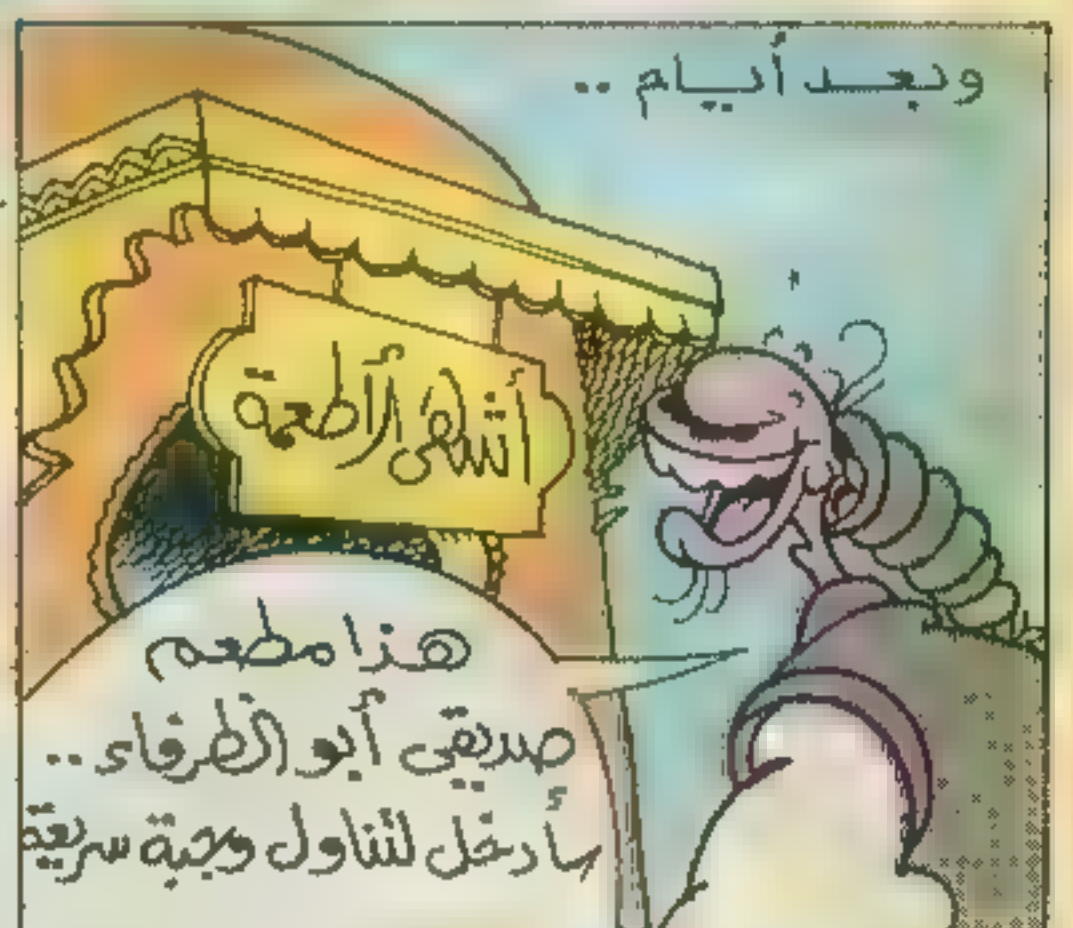 وبعد أيام ..
أشهى الأطعمة
هذا مطعم
صديقى أبو الظرفاء ..
سأدخل لتناول وجبة سريعة